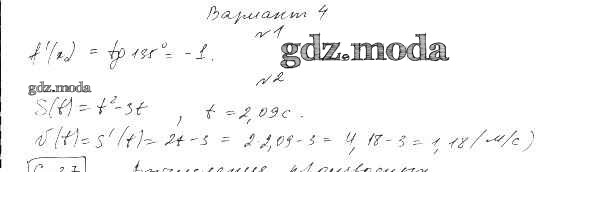 Вариант 4
№1
f'(x₀) = tg 135° = -1.
gdz.moda
№2
gdz.moda
S(t) = t² - 3t, t = 2,09 с.
v(t) = s'(t) = 2t - 3 = 2·2,09 - 3 = 4,18 - 3 = 1,18 (м/с)
С-27